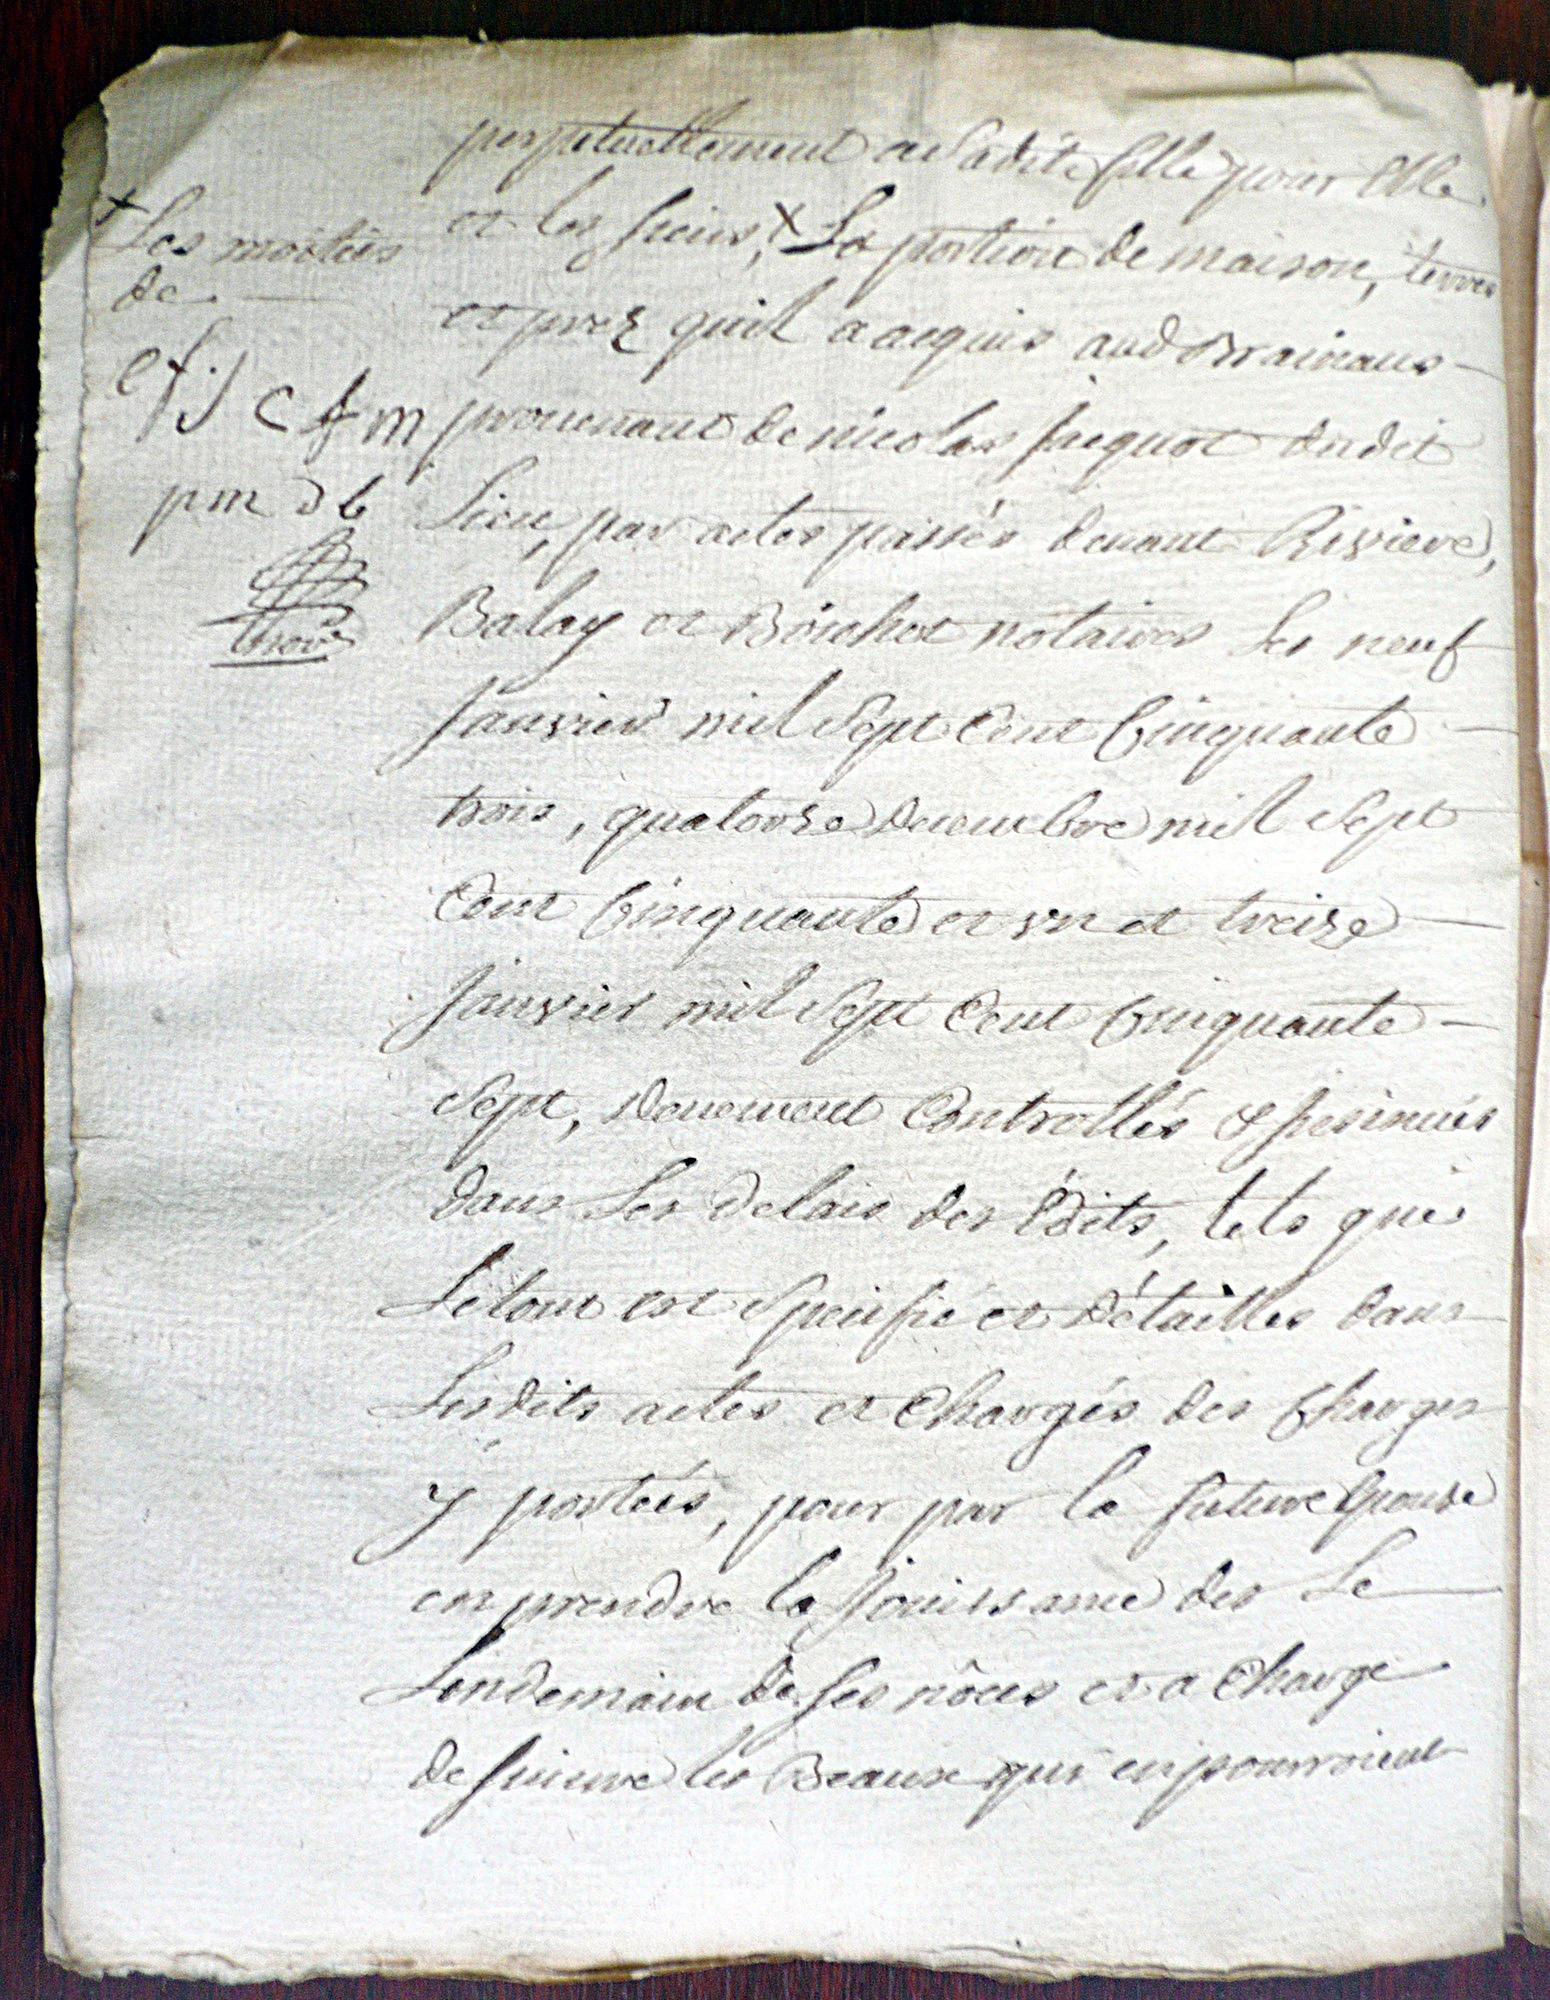 perpetuellement a Sadite fille pour Elle
et les siens, x La portion de maison, terres
et prez quil a acquis aud Orrainans
provenant de nicolas Jacquot dudit
Lieu, par actes passés devant Riviere,
Balay et Boichot notaires Les neuf
Janvier mil Sept Cent Cinquante
trois, quatorze Decembre mil Sept
Cent Cinquante et un et treize
Janvier mil Sept Cent Cinquante
Sept, Deuement Controllés & Insinués
dans Les delais des Edits, tels que
Letout est Specifié et Détaillés dans
Lesdits actes et Chargés des Charges
y portées, pour par la future Epouse
en prendre la Jouissance des Le
Lendemain de ses nôces et a Charge
de suivre les Beaux qui en pourroient
x
Les moitiés
de
efj c f m
pm db